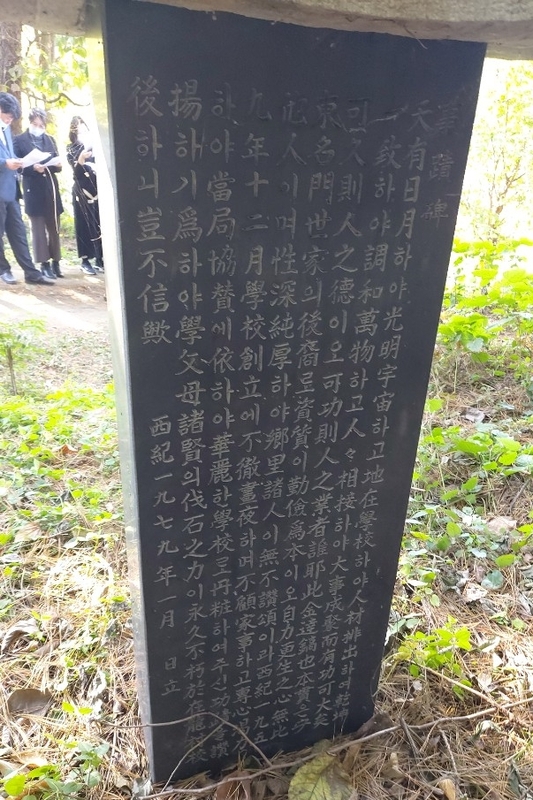 蹟碑
天有日月하야光明宇宙하고地在學校하야人材排出하여乾坤
一致하야調和萬物하고人々相接하야大事成發而有功可大矣
可久則人之德이오可功則人之業者誰耶此金達鎬也本貫
東名門世家의後裔로資質이勤儉爲本이오自力更生之心無比
人이며性深純厚하야鄕里諸人이無不讚頌이라西紀一九五
九年十二月學校創立에不徹晝夜하며不顧家事하고專心
하야當局協贊에依하야華麗한學校로丹粧하여주신功을讚
揚하기爲하야學父母諸賢의伐石之力이永久不朽於在校
後하니豈不信歟
西紀一九七九年一月 日立